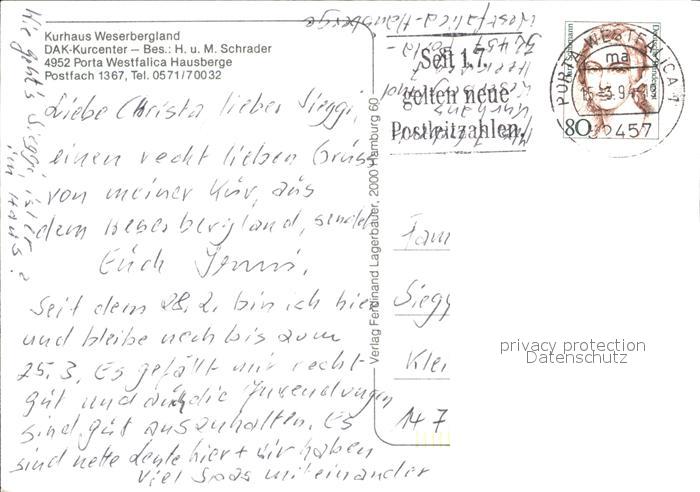 Kurhaus Weserbergland
DAK-Kurcenter – Bes.: H. u. M. Schrader
4952 Porta Westfalica Hausberge
Postfach 1367, Tel. 0571/70032
Liebe Christa lieber Sieggi,
einen recht lieben Gruss
von meiner Kur, aus
dem Weserbergland, sendet
Euch Jenni.
Seit dem 28.2. bin ich hier
und bleibe noch bis zum
25.3. Es gefällt mir recht
gut und auch die Anwendungen
sind gut auszuhalten. Es
sind nette Leute hier + wir haben
viel Spas miteinander
Wie geht's Sieggi, ist er
im Haus?
Verlag Ferdinand Lagerbauer, 2000 Hamburg 60
Kurhaus
32457 Porta-
Westfalica-Hausberge
Seit 1.7.
gelten neue
Postleitzahlen.
PORTA WESTFALICA 1
ma
32457
Deutsche Bundespost
80
Fam
Siegg
Klei
147
privacy protection
Datenschutz